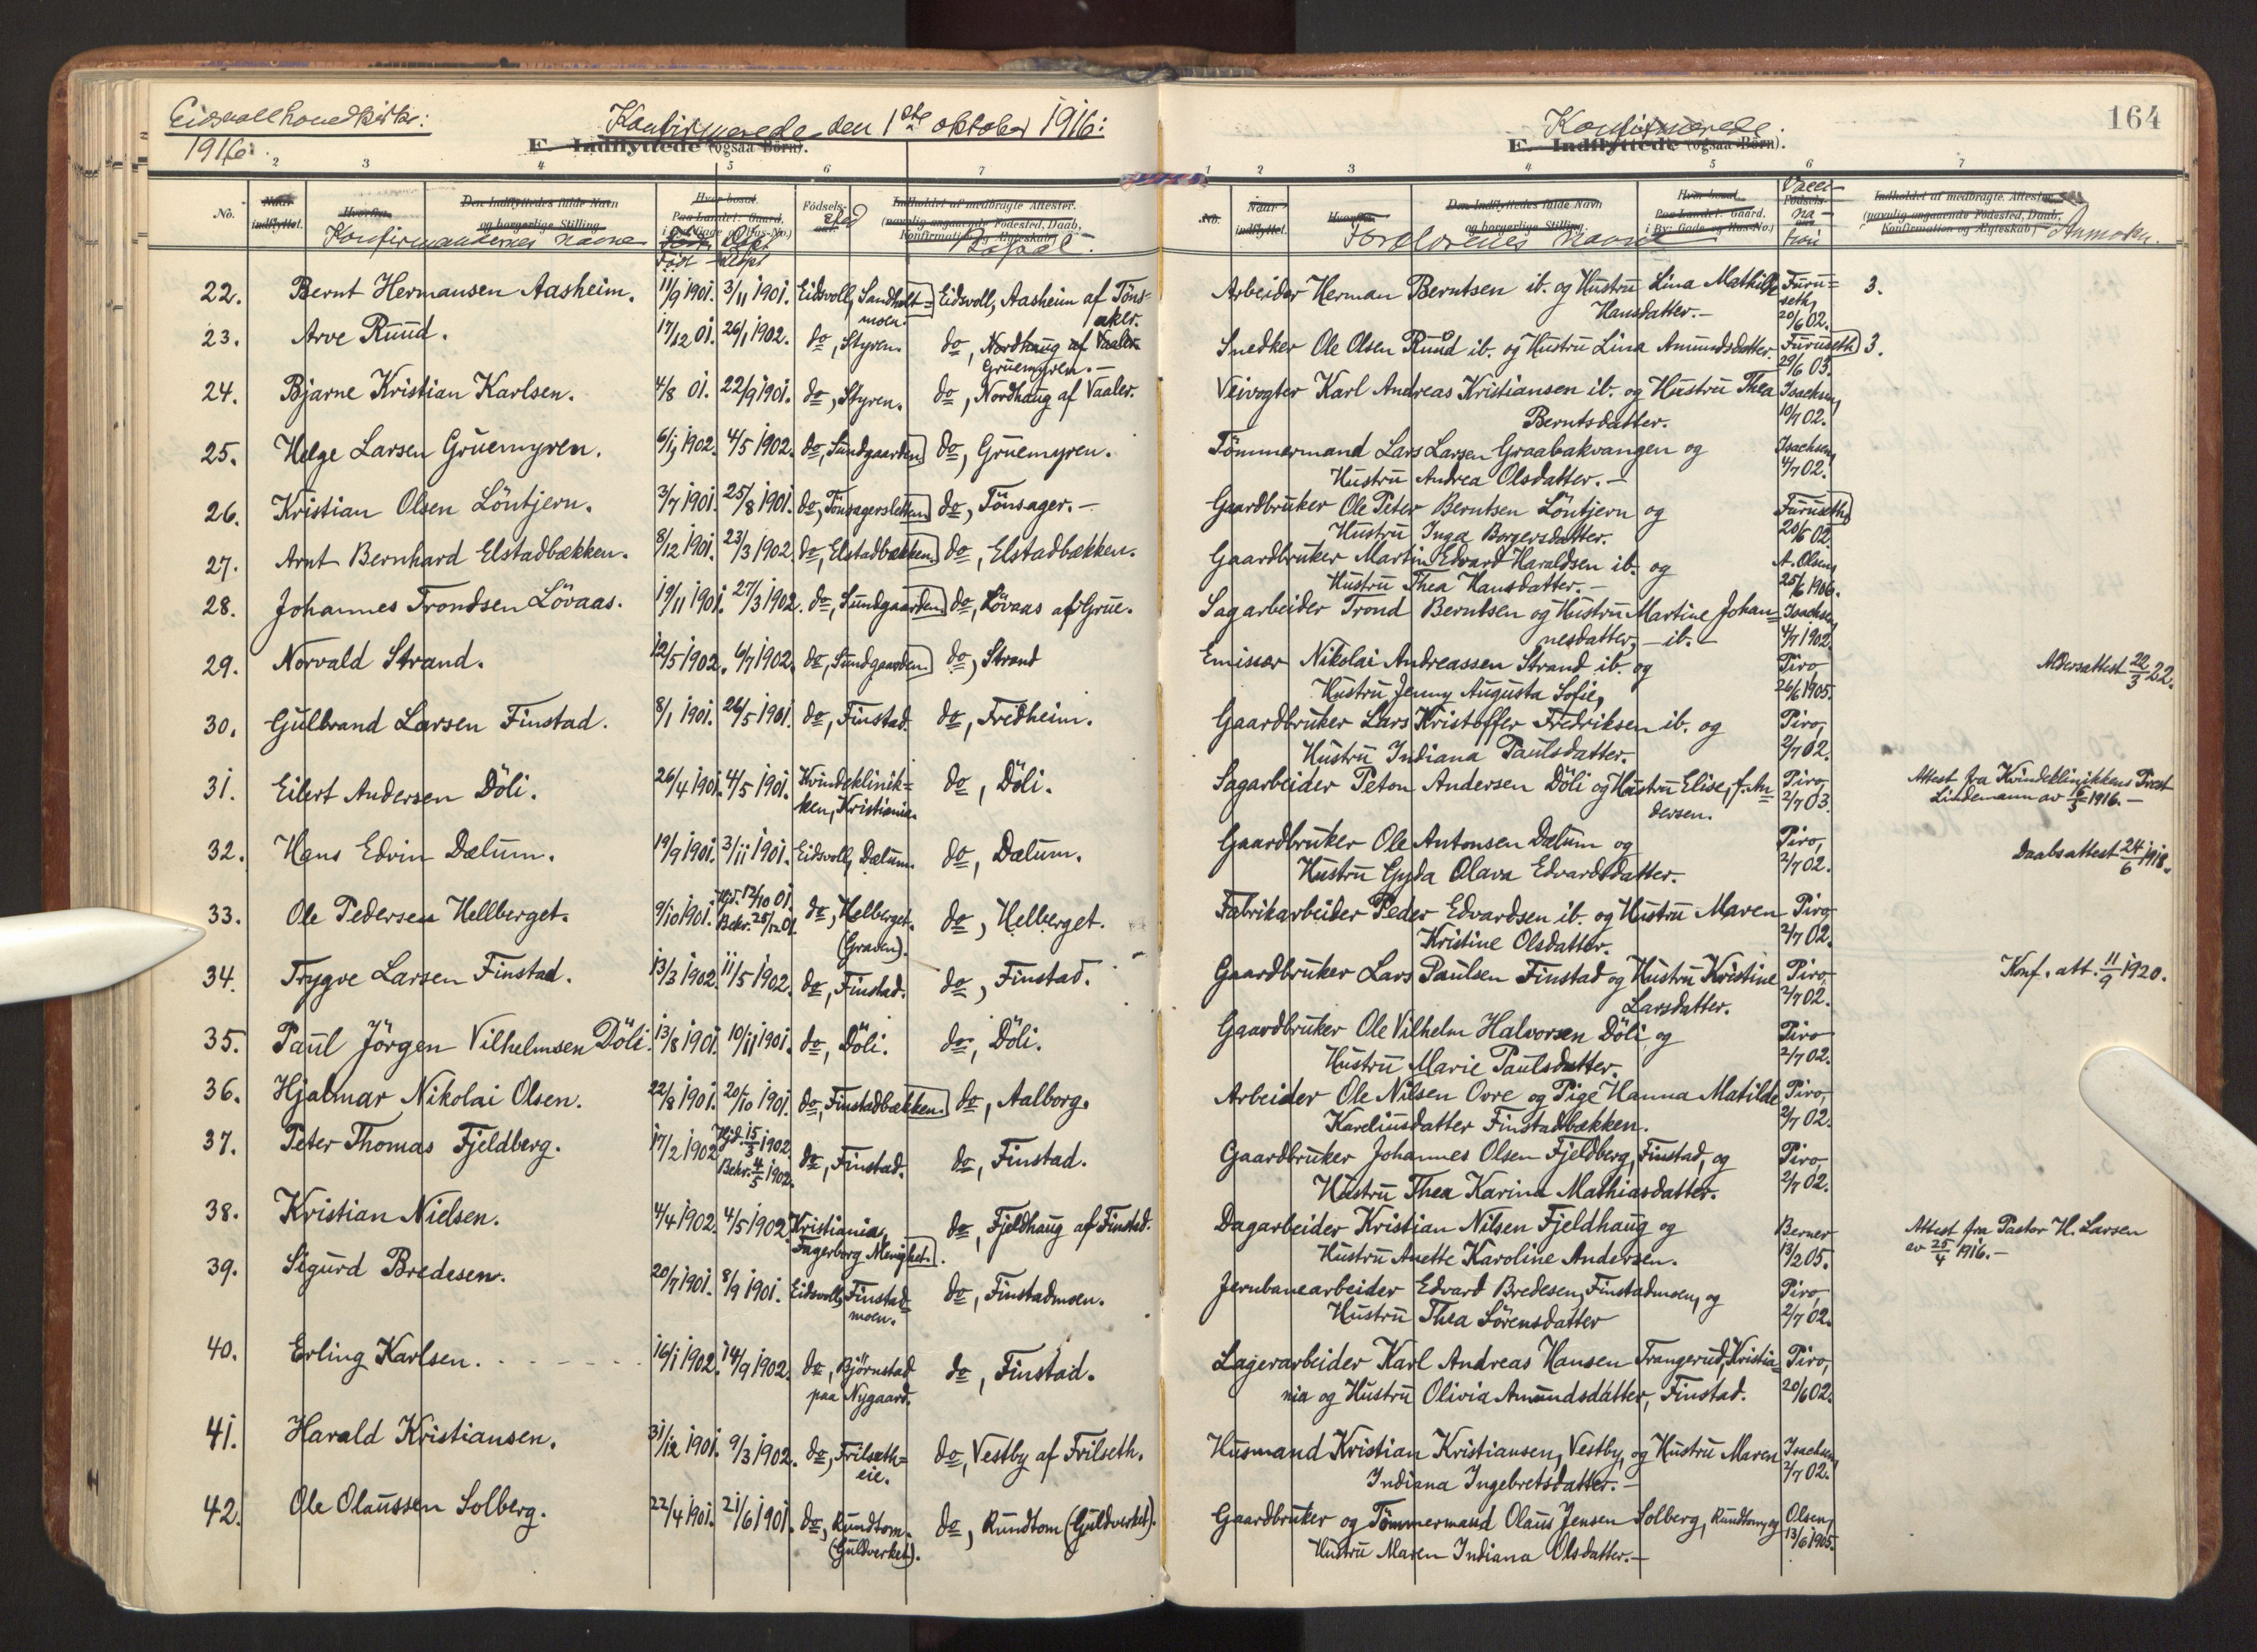 Eidsvoll hovedkirke:
1916.
Konfirmerede den 1ste oktober 1916:
E. Indflyttede (ogsaa Börn).
2 3 4 5 6 7
No.
Naar indflyttet.
Hvorfra.
Den Indflyttedes fulde Navn
og borgerlige Stilling.
Konfirmandernes navne
Hvor bosat.
Paa Landet: Gaard.
Født Døpt
Fødsels-
sted
Indholdet af medbragte Attester.
(navnlig angaaende Födested, Daab,
Konfirmation og Ægteskab)
Bopæl.
22. Bernt Hermansen Aasheim. 11/9 1901. 3/11 1901. Eidsvoll, Sandholt= Eidsvoll, Aasheim af Töns-
moen. aker.
23. Arve Ruud. 17/12 01. 26/1 1902. do, Styren. do, Nordhaug af Vaaler.
Gruemyren.-
24. Bjarne Kristian Karlsen. 4/8 01. 22/9 1901. do, Styren. do, Nordhaug af Vaaler.
25. Helge Larsen Gruemyren. 6/1 1902. 4/5 1902. do, Sundgaarden do, Gruemyren.
26. Kristian Olsen Löntjern. 3/7 1901. 25/8 1901. do, Tönsagersletten do, Tönsager.-
27. Arnt Bernhard Elstadbækken. 8/12 1901. 23/3 1902. do, Elstadbækken. do, Elstadbækken.
28. Johannes Trondsen Lövaas. 19/11 1901. 27/3 1902. do, Sundgaarden do, Lövaas af Grue.
29. Norvald Strand. 12/5 1902. 6/7 1902. do, Sundgaarden do, Strand
30. Gulbrand Larsen Finstad. 8/1 1901. 26/5 1901. do, Finstad. do, Fredheim.
31. Eilert Andersen Döli. 26/4 1901. 4/5 1901. Kvindeklinik= do, Döli.
ken, Kristiania.
32. Hans Edvin Dælum. 19/9 1901. 3/11 1901. Eidsvoll, Dælum. do, Dælum.
33. Ole Pedersen Hellberget. 9/10 1901. Hjd. 12/10 01. do, Helberget. do, Helberget.
Bekr. 25/12 01. (Graven).
34. Trygve Larsen Finstad. 13/3 1902. 11/5 1902. do, Finstad. do, Finstad.
35. Paul Jörgen Vilhelmsen Döli. 13/8 1901. 10/11 1901. do, Döli. do, Döli.
36. Hjalmar Nikolai Olsen. 22/8 1901. 20/10 1901. do, Finstadbækken. do, Aalborg.
37. Peter Thomas Fjeldberg. 17/2 1902. Hjd. 15/3 1902. do, Finstad. do, Finstad.
Bekr. 4/5 1902.
38. Kristian Nielsen. 4/4 1902. 4/5 1902. Kristiania, do, Fjeldhaug af Finstad.
Fagerborg Menighet.
39. Sigurd Bredesen. 20/7 1901. 8/9 1901. Eidsvoll, Finstad= do, Finstadmoen.
moen.
40. Erling Karlsen. 16/1 1902. 14/9 1902. do, Bjørnstad do, Finstad.
paa Nygaard.
41. Harald Kristiansen. 31/12 1901. 9/3 1902. do, Frilseth= do, Vestby af Frilseth.
eie.
42. Ole Olaussen Solberg. 22/4 1901. 21/6 1901. do, Rundtom. do, Rundtom (Guldverket).
(Guldverket).
164
Konfirmerede.
E. Indflyttede (ogsaa Börn).
1 2 3 4 5 6 7
No.
Naar indflyttet.
Hvorfra.
Den Indflyttedes fulde Navn
og borgerlige Stilling.
Forældrenes navne
Hvor bosat.
Paa Landet: Gaard.
i By: Gade og Hus-No.)
Vacci-
Födsels-
na-
tion
Indholdet af medbragte Attester.
(navnlig angaaende Födested, Daab,
Konfirmation og Ægteskab)
Anmerkn.
Arbeider Herman Berntsen ib. og Hustru Lina Mathilde Furu= 3.
Hansdatter.- seth, 20/6 02.
Snedker Ole Olsen Ruud ib. og Hustru Lina Amundsdatter. Furuseth 3.
29/6 03.
Veivogter Karl Andreas Kristiansen ib. og Hustru Thea Isachsen,
Berntsdatter. 10/7 02.
Tömmermand Lars Larsen Graabakvangen og Isachsen,
Hustru Andrea Olsdatter.- 4/7 02.
Gaardbruker Ole Peter Berntsen Löntjern og Furuseth,
Hustru Inga Borgersdatter. 20/6 02.
Gaardbruker Martin Edvard Haraldsen ib. og A. Olsen,
Hustru Thea Hansdatter.- 25/6 1906.
Sagarbeider Trond Berntsen og Hustru Martine Johan= Isachsen,
nesdatter,- ib.- 4/7 1902.
Emissær Nikolai Andreassen Strand ib. og Piro, Aldersattest 22/3 22.
Hustru Jenny Augusta Sofie, 26/6 1905.
Gaardbruker Lars Kristoffer Fredriksen ib. og Piro,
Hustru Indiana Paulsdatter. 2/7 02.
Sagarbeider Peton Andersen Döli og Hustru Elise, f. An= Piro, Attest fra Kvindeklinikkens Prest
dersen. 2/7 03. Lindemann av 16/5 1916.-
Gaardbruker Ole Antonsen Dælum og Piro, Daabsattest 24/6 1918.
Hustru Gyda Olava Edvardsdatter. 2/7 02.
Fabrikarbeider Peder Edvardsen ib. og Hustru Maren Piro,
Kristine Olsdatter. 2/7 02.
Gaardbruker Lars Paulsen Finstad og Hustru Kristine Piro, Konf. att. 11/9 1920.
Larsdatter. 2/7 02.
Gaardbruker Ole Vilhelm Halvorsen Döli og Piro
Hustru Marie Paulsdatter. 2/7 02.
Arbeider Ole Nilsen Ovre og Pige Hanna Matilde Piro,
Kareliusdatter Finstadbækken. 2/7 02.
Gaardbruker Johannes Olsen Fjeldberg, Finstad, og Piro,
Hustru Thea Karina Mathiasdatter. 2/7 02.
Dagarbeider Kristian Nilsen Fjeldhaug og Berner Attest fra Pastor H. Larsen
Hustru Anette Karoline Andersen. 13/2 05. av 25/4 1916.-
Jernbanearbeider Edvard Bredesen, Finstadmoen, og Piro,
Hustru Thea Sörensdatter 2/7 02.
Lagerarbeider Karl Andreas Hansen Trangerud, Kristia= Piro,
nia og Hustru Olivia Amundsdatter, Finstad. 20/6 02.
Husmand Kristian Kristiansen, Vestby, og Hustru Maren Isachsen,
Indiana Ingebretsdatter.- 2/7 02.
Gaardbruker og Tömmermand Olaus Jensen Solberg, Rundtom, og Olsen,
Hustru Maren Indiana Olsdatter.- 13/6 1905.